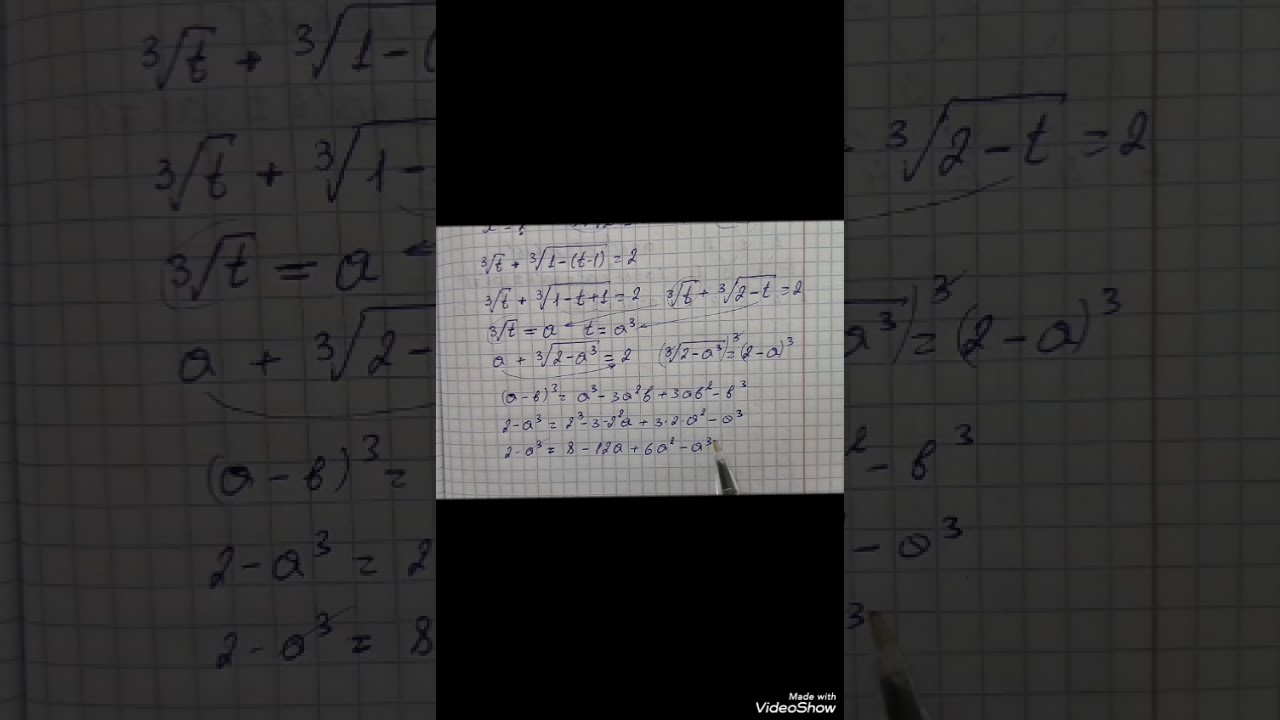 ³√t + ³√1-(t-1) = 2
³√t + ³√1-t+1 = 2 ³√t + ³√2-t = 2
³√t = a t = a³
a + ³√2-a³ = 2 (³√2-a³)³ = (2-a)³
(a-b)³ = a³ - 3a²b + 3ab² - b³
2-a³ = 2³ - 3·2²a + 3·2·a² - a³
2-a³ = 8 - 12a + 6a² - a³
Made with
VideoShow